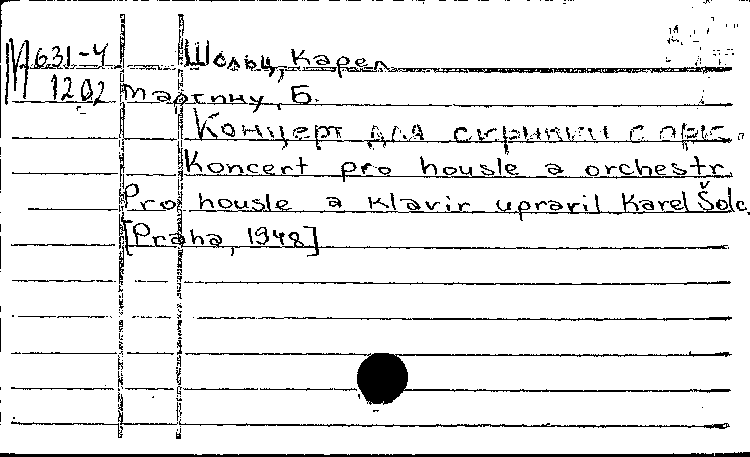 М 631-4 Шольц, Карел
1202 Мартину, Б.
Концерт для скрипки с орк.
Koncert pro housle a orchestr.
Pro housle a klavir upravil Karel Šolc.
[Praha, 1948]